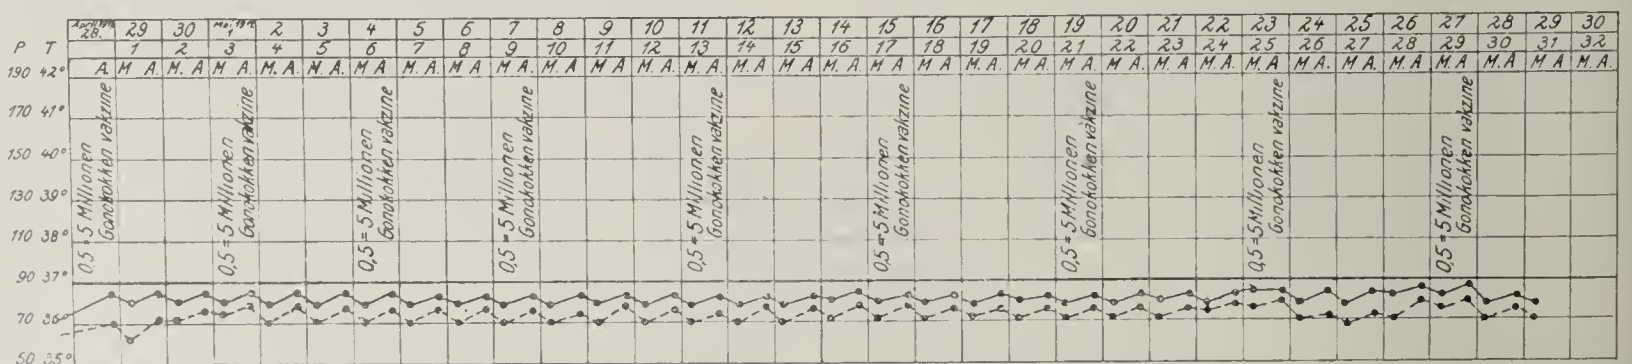 April 28. 29 30 Mai 1 2 3 4 5 6 7 8 9 10 11 12 13 14 15 16 17 18 19 20 21 22 23 24 25 26 27 28 29 30
P T 1 2 3 4 5 6 7 8 9 10 11 12 13 14 15 16 17 18 19 20 21 22 23 24 25 26 27 28 29 30 31 32
190 42° A. M A. M. A M A. M. A. M. A. M A M. A. M. A. M. A M. A. M A M. A. M. A. M. A. M. A. M. A. M A M. A. M. A. M. A. M. A M. A. M. A. M. A. M. A. M. A. M A M. A. M. A M. A M A M. A.
170 41°
150 40°
130 39°
110 38°
90 37°
70 36°
50 35°
0,5 = 5 Millionen
Gonokokken vakzine
0,5 = 5 Millionen
Gonokokken vakzine
0,5 = 5 Millionen
Gonokokken vakzine
0,5 = 5 Millionen
Gonokokken vakzine
0,5 = 5 Millionen
Gonokokken vakzine
0,5 = 5 Millionen
Gonokokken vakzine
0,5 = 5 Millionen
Gonokokken vakzine
0,5 = 5 Millionen
Gonokokken vakzine
0,5 = 5 Millionen
Gonokokken vakzine